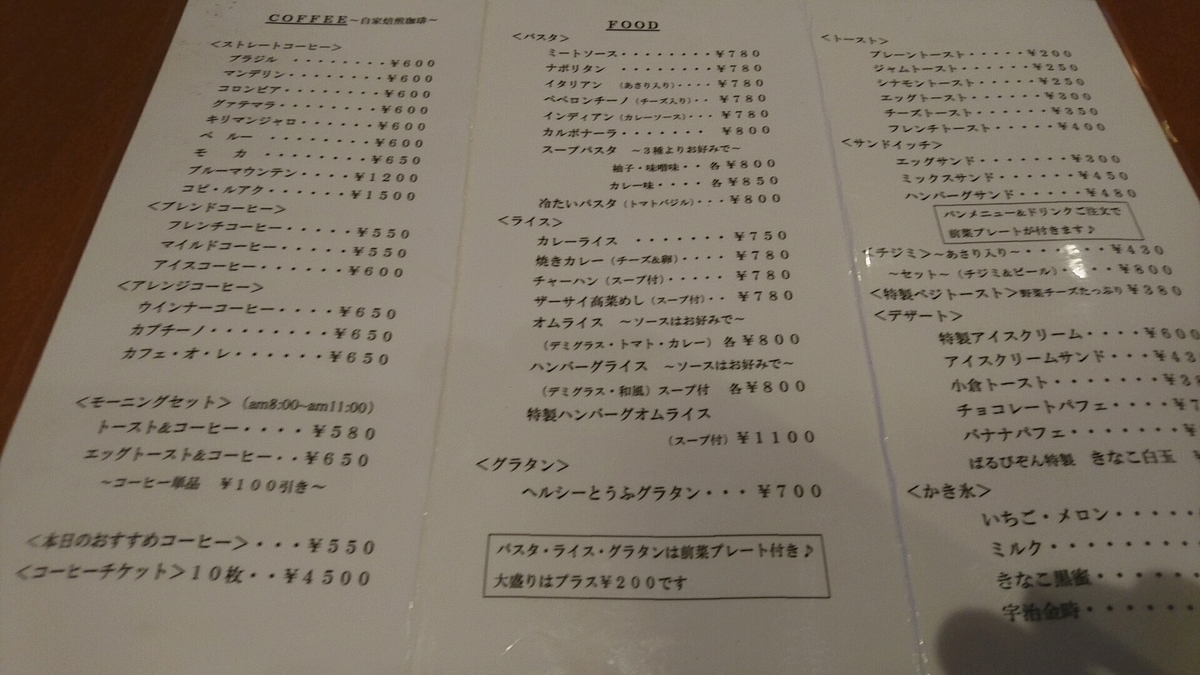 COFFEE～自家焙煎珈琲～
＜ストレートコーヒー＞
ブラジル ・・・・・・・・￥600
マンデリン・・・・・・・・￥600
コロンビア・・・・・・・・￥600
グァテマラ・・・・・・・・￥600
キリマンジャロ・・・・・・￥600
ペルー ・・・・・・・・￥600
モカ ・・・・・・・・￥650
ブルーマウンテン・・・・￥1200
コピ・ルアク・・・・・・￥1500
＜ブレンドコーヒー＞
フレンチコーヒー・・・・・￥550
マイルドコーヒー・・・・・￥550
アイスコーヒー・・・・・・￥600
＜アレンジコーヒー＞
ウインナーコーヒー・・・・￥650
カプチーノ・・・・・・・・￥650
カフェ・オ・レ・・・・・・￥650
＜モーニングセット＞（am8:00~am11:00）
トースト&コーヒー・・・・￥580
エッグトースト&コーヒー・・￥650
～コーヒー単品 ￥100引き～
＜本日のおすすめコーヒー＞・・・￥550
＜コーヒーチケット＞10枚・・￥4500
FOOD
＜パスタ＞
ミートソース・・・・・・・・￥780
ナポリタン ・・・・・・・・￥780
イタリアン （あさり入り）・・・・￥780
ペペロンチーノ（チーズ入り）・・￥780
インディアン（カレーソース）・・・￥780
カルボナーラ・・・・・・・ ￥800
スープパスタ ～3種よりお好みで～
柚子・味噌味・・ 各￥800
カレー味・・・・ 各￥850
冷たいパスタ（トマトバジル）・・・￥800
＜ライス＞
カレーライス ・・・・・・・￥750
焼きカレー（チーズ&卵）・・・￥780
チャーハン（スープ付）・・・・￥780
ザーサイ高菜めし（スープ付）・・￥780
オムライス ～ソースはお好みで～
（デミグラス・トマト・カレー）各￥800
ハンバーグライス ～ソースはお好みで～
（デミグラス・和風）スープ付 各￥800
特製ハンバーグオムライス
（スープ付）￥1100
＜グラタン＞
ヘルシーとうふグラタン・・・￥700
パスタ・ライス・グラタンは前菜プレート付き♪
大盛りはプラス￥200です
＜トースト＞
プレーントースト・・・・・￥200
ジャムトースト・・・・・・￥250
シナモントースト・・・・・￥250
エッグトースト・・・・・・￥300
チーズトースト・・・・・・￥350
フレンチトースト・・・・・￥400
＜サンドイッチ＞
エッグサンド・・・・・・・￥300
ミックスサンド・・・・・・￥450
ハンバーグサンド・・・・・￥480
パンメニュー&ドリンクご注文で
前菜プレートが付きます♪
＜チヂミ＞～あさり入り～・・・・・・￥430
～セット～（チヂミ&ビール）・・・・￥800
＜特製ベジトースト＞野菜チーズたっぷり￥380
＜デザート＞
特製アイスクリーム・・・・￥600
アイスクリームサンド・・・￥43
小倉トースト・・・・・・・￥3
チョコレートパフェ・・・・￥7
バナナパフェ・・・・・・・￥
ばるびぞん特製 きなこ白玉 ￥
＜かき氷＞
いちご・メロン・・・・・
ミルク・・・・・・・・
きなこ黒蜜・・・・・・
宇治金時・・・・・・